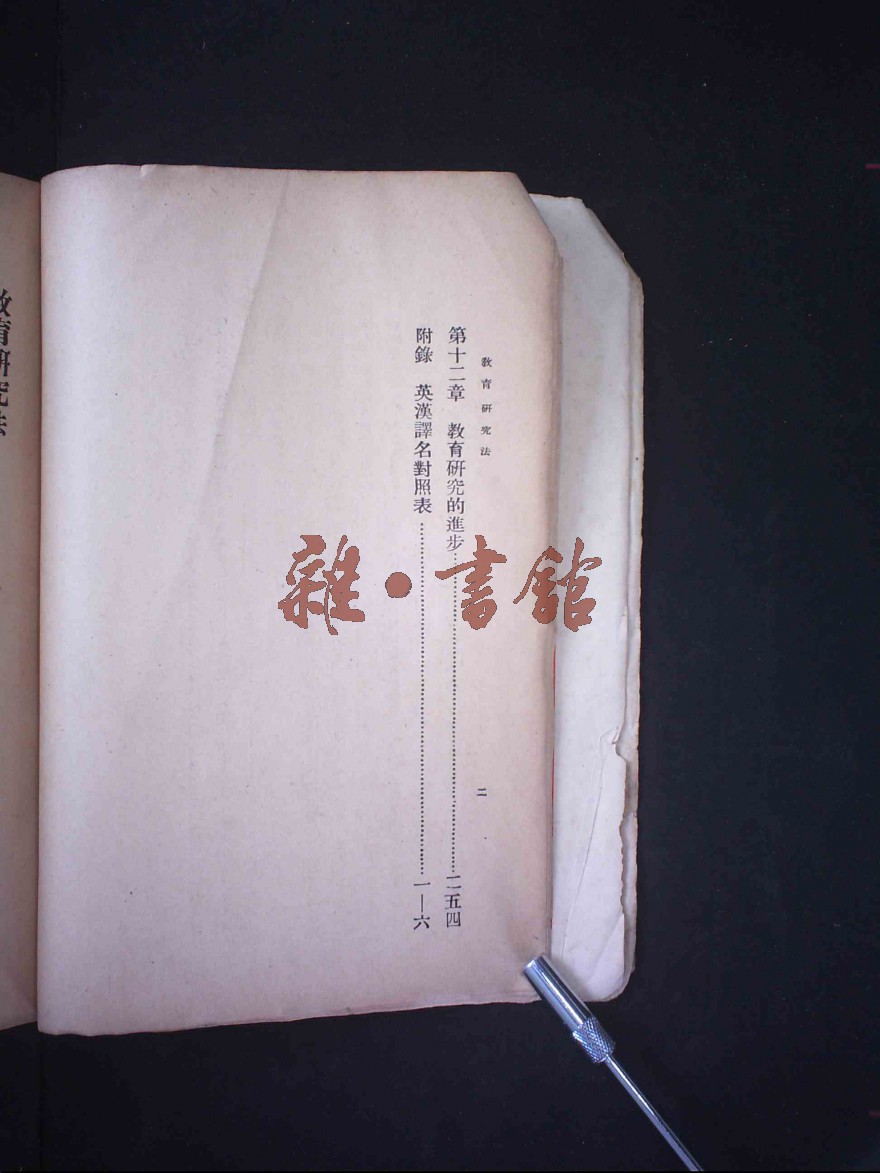 教育研究法
二
第十二章　教育研究的進步…………二五四
附錄　英漢譯名對照表…………一—六
雜·書館
教育研究法